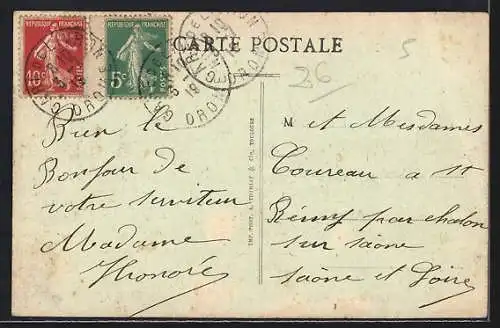 REPUBLIQUE FRANÇAISE
10c
REPUBLIQUE FRANÇAISE
5c
CARTE POSTALE
5
26
Bien le
Bonjour de
votre serviteur
Madame
Honoré
M et Mesdames
Coureau a St
Rémy par chalon
sur saône
saône et Loire